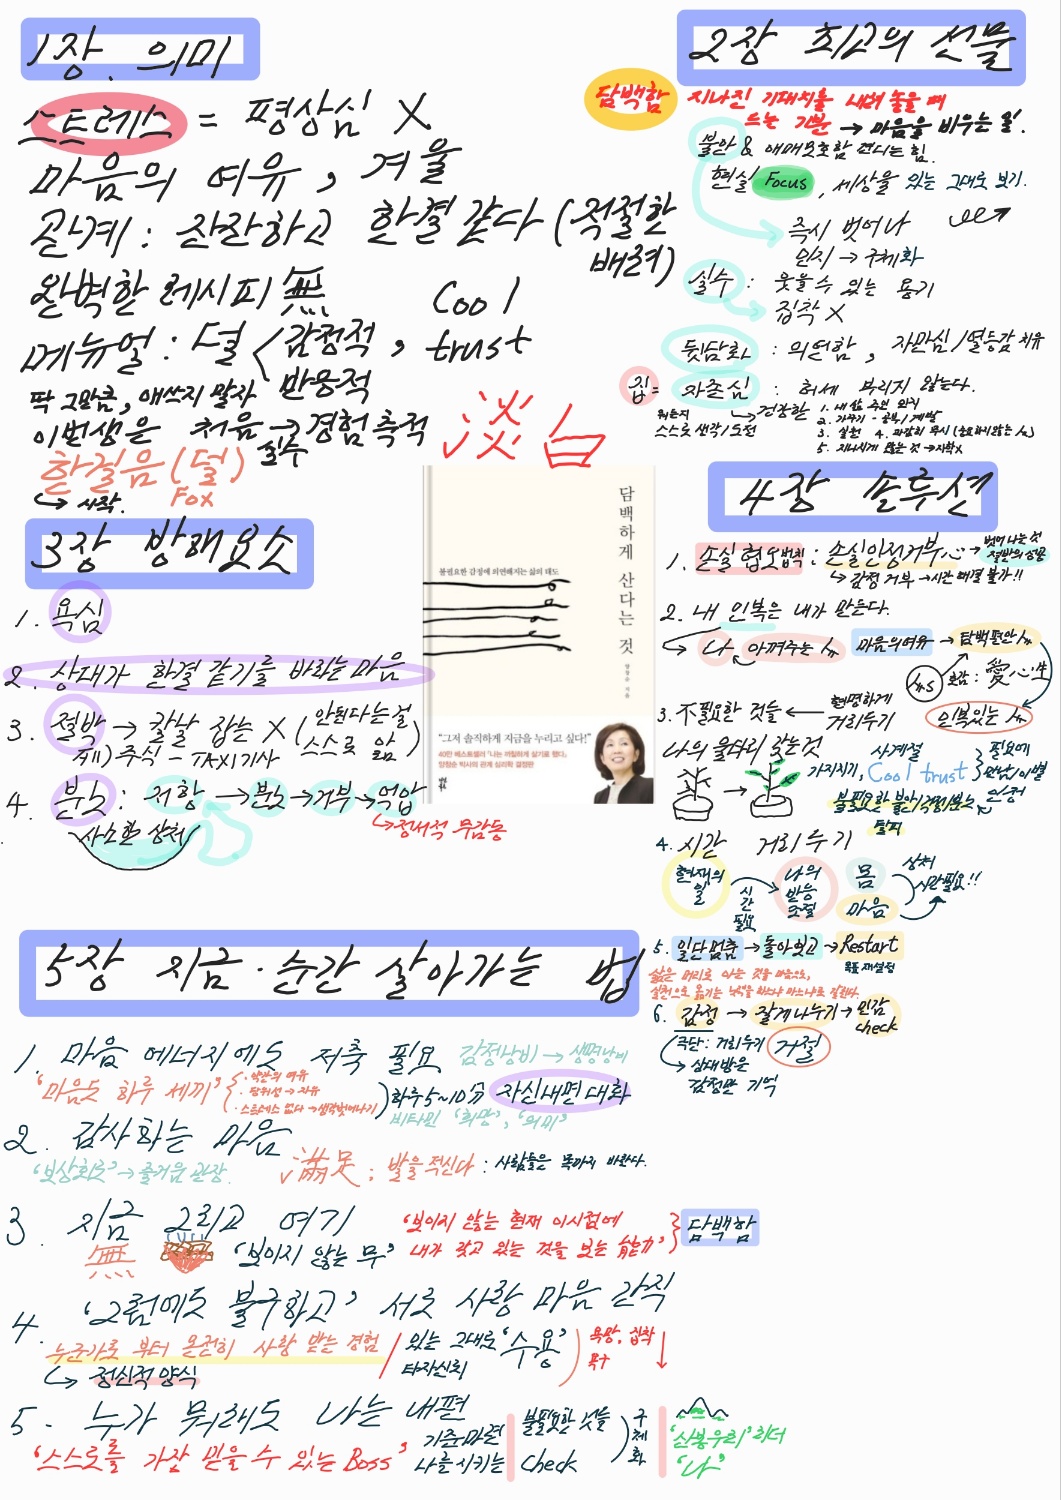 1장. 의미
스트레스 = 평상심 X
마음의 여유, 겨울
관계: 잔잔하고 한결 같다 (적절한
배려)
완벽한 레시피 無 Cool
메뉴얼: 덜 < 감정적, trust
반응적
딱 그만큼, 애쓰지 말자
이번생은 처음 → 경험 축적
실수
한걸음 (덜)
Fox
↳ 시작.
淡白
2장 최고의 선물
담백함 지나진 기대치를 내려 놓을 때
드는 기분 → 마음을 비우는 일.
불안 & 애매모호함 견디는 힘.
현실 Focus, 세상을 있는 그대로 보기.
즉시 벗어나
인지 → 구체화
실수: 웃을 수 있는 용기
집착 X
뒷담화: 의연함, 자만심/열등감 치유
집 = 자존심: 허세 부리지 않는다.
뭐든지
스스로 생각/도전
↳ 건강한 1. 내 삶 주인 의식
2. 가꾸기 - 공부/계발
3. 실천 4. 과감히 무시
5. 지나치게 않는 것 → 자학X
3장 방해요소
1. 욕심
2. 상대가 한결 같기를 바라는 마음
3. 절박 → 칼날 잡는 X (안된다는걸
스스로 앎)
예) 주식 - TAXI기사
4. 분노: 저항 → 분노 → 거부 → 억압
사소한 상처
↳ 정서적 무감동
담백하게 산다는 것
불필요한 감정에 의연해지는 삶의 태도
양창순 지음
"그저 솔직하게 지금을 누리고 싶다!"
40만 베스트셀러 『나는 까칠하게 살기로 했다』
양창순 박사의 관계 심리학 결정판
4장 솔루션
1. 손실 혐오법칙: 손실인정거부心 → 벗어나는 것
절반의 성공
↳ 감정 거부 → 시간 해결 불가!!
2. 내 인복은 내가 만든다.
↳ 나 아껴주는 人 마음의여유 → 담백한 人
人s 호감: 愛心生
인복있는 人
3. 不필요한 것들 ← 현명하게
거리두기
나의 울타리 갖는것
사계절
가지치기, Cool trust
필요에
만남/이별
인정
불필요한 불안/걱정/분노
탈피
4. 시간 거리두기
현재의
일
시간
필요
나의
반응
조절
몸
마음
상처
시간필요!!
5. 일단멈춤 → 돌아보고 → Restart
목표 재설정
삶은 머리로 아는 것을 마음으로,
실천으로 옮기는 노력을 하느냐 마느냐로 달린다.
6. 감정 → 잘게 나누기 → 민감
check
극단: 거리두기 거절
↳ 상대방은
감정만 기억
5장 지금·순간 살아가는 법
1. 마음 에너지에도 저축 필요 감정낭비 → 생명낭비
'마음도 하루 세끼'
· 약간의 여유
· 당위성 → 자유
· 스트레스 없다 → 생각벗어나기
하루 5~10分 자신내면 대화
비타민 '희망', '의미'
2. 감사하는 마음
'보상회로' → 즐거운 관장. 滿足: 발을 적신다: 사람들은 목까지 바란다.
3. 지금 그리고 여기 '보이지 않는 현재 이시점에
내가 갖고 있는 것을 보는 能力' 담백함
無 '보이지 않는 무'
4. '그럼에도 불구하고' 서로 사랑 마음 간직
누군가로 부터 온전히 사랑 받는 경험
↳ 정신적 양식
있는 그대로 '수용'
타자신뢰
욕망, 집착
5. 누가 뭐래도 나는 내편
'스스로를 가장 믿을 수 있는 Boss'
기준마련
나를 시키는
불필요한 것들
check
구체화
'산봉우리' 리더
'나'